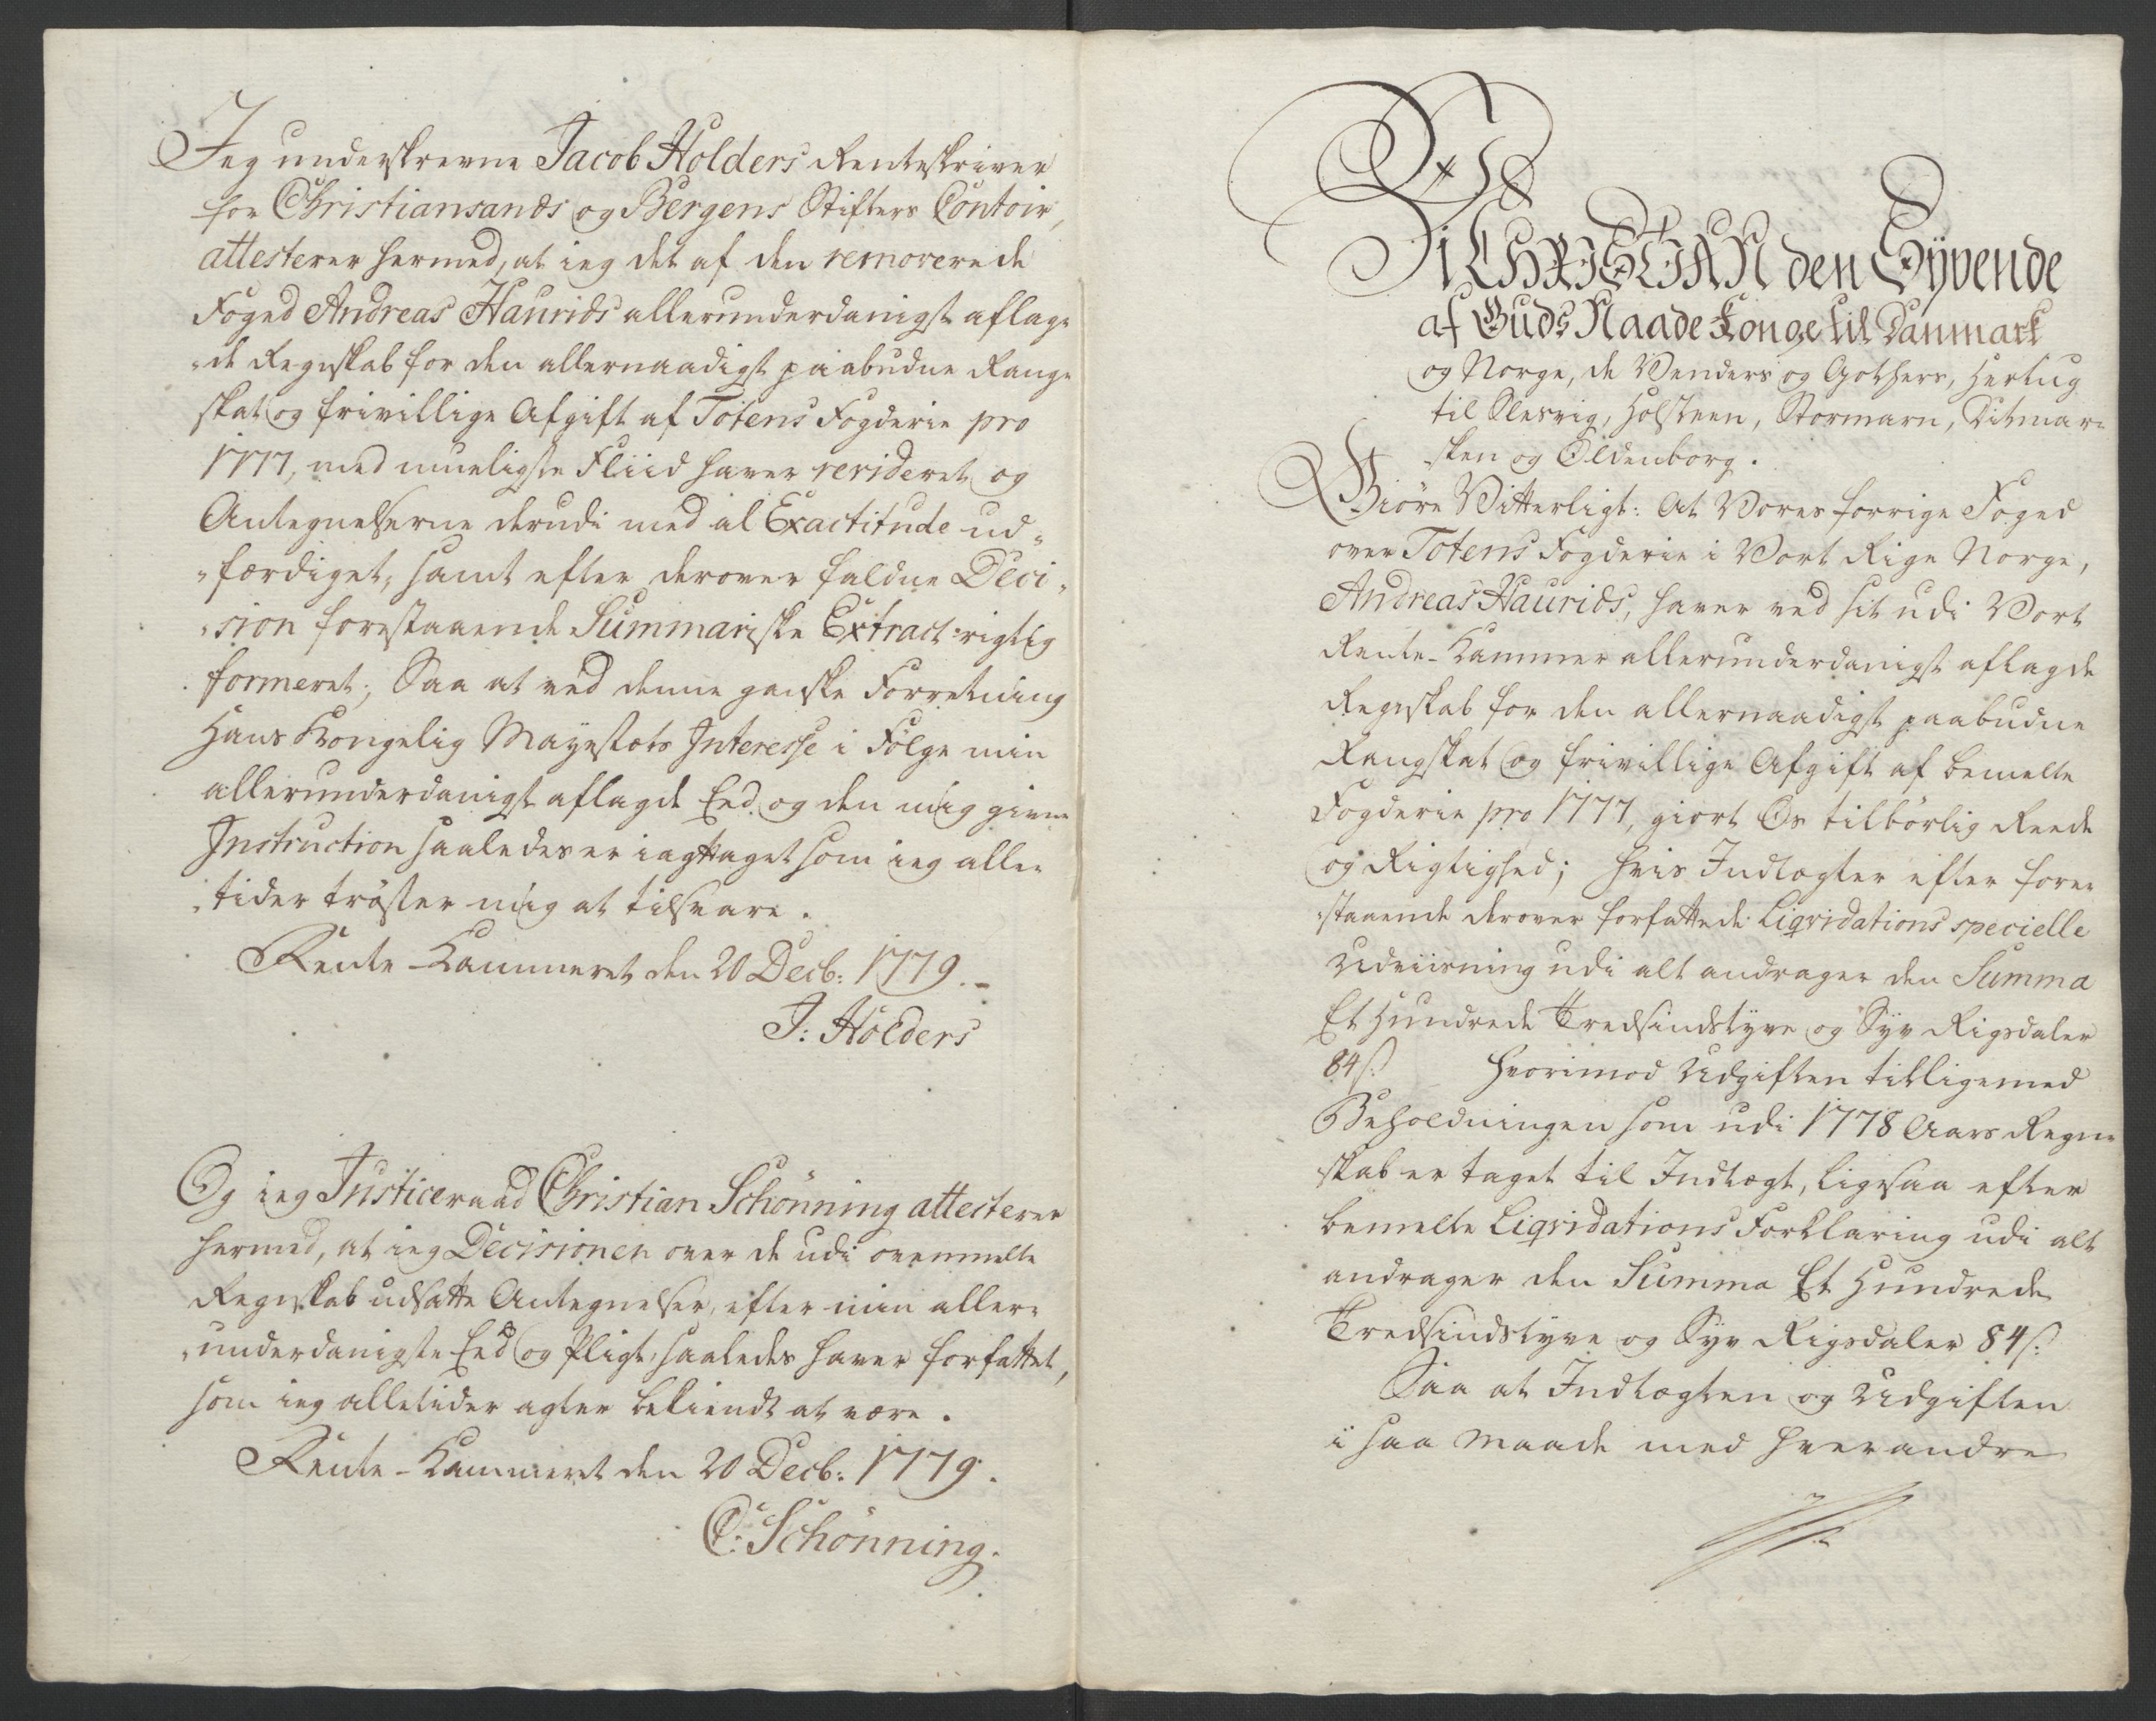 Jeg underskrevne Jacob Holders Renteskriver
for Christiansands og Bergens Stifters Contoir,
attesterer hermed, at ieg det af den removerede
Foged Andreas Haurids allerunderdanigst aflag-
-de Regnskab for den allernaadigst paabudne Rang-
skat og frivillige Afgift af Totens Fogderie pro
1777, med mueligste Fliid haver revideret og
Antegnelserne derudi med al Exactitude ud-
-færdiget, samt efter derover faldne Deci-
-sion forestaaende Summariske Extract rigtig
formeret; Saa at ved denne ganske Forretning
Hans Kongelig Mayestæts Interesse i Følge min
allerunderdanigst aflagde Eed og den mig givne
Instruction saaledes er iagttaget som ieg alle-
-tider trøster mig at tilsvare.
Rente-Kammeret den 20 Decb: 1779.-
J: Holders
Og ieg Justiceraad Christian Schønning attesterer
hermed, at ieg Decisionen over de udi ovenmelte
Regnskab udsatte Antegnelser, efter min aller-
-underdanigste Eed og Pligt, saaledes haver forfattet,
som ieg alletider agter bekiendt at være.
Rente-Kammeret den 20 Decb: 1779.
C: Schønning.
Vi CHRISTIAN den Syvende
af Guds Naade Konge til Danmark
og Norge, de Venders og Gothers, Hertug
til Slesvig, Holsteen, Stormarn, Ditmar-
-sken og Oldenborg.
Giøre Vitterligt: At Vores forrige Foged
over Totens Fogderie i Vort Rige Norge,
Andreas Haurids, haver ved sit udi Vort
Rente-Kammer allerunderdanigst aflagde
Regnskab for den allernaadigst paabudne
Rangskat og frivillige Afgift af bemelte
Fogderie pro 1777, giort Os tilbørlig Reede
og Rigtighed; hvis Indtægter efter fore-
-staaende derover forfattede Liqvidations specielle
Udviisning udi alt andrager den Summa
Et Hundrede Tredsindstyve og Syv Rigsdaler
84 s: Hvorimod Udgiften tilligemed
Beholdningen som udi 1778 Aars Regn-
-skab er taget til Indtægt, ligesaa efter
bemelte Liqvidations Forklaring udi alt
andrager den Summa Et Hundrede
Tredsindstyve og Syv Rigsdaler 84 s:
Saa at Indtægten og Udgiften
i saa Maade med hverandre